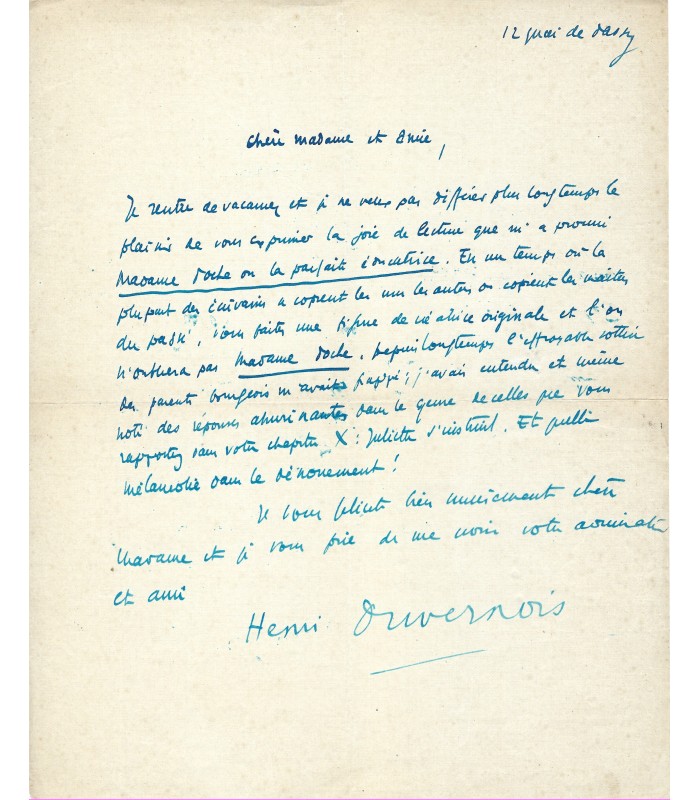 12 quai de Passy
Chère Madame et Amie,
Je rentre de vacances et je ne veux pas différer plus longtemps le
plaisir de vous exprimer la joie de lecture que m'a procuré
Madame Doche ou la parfaite éducatrice. En un temps où la
plupart des écrivains copient les uns les autres ou copient les maîtres
du passé, vous faites une figure de créatrice originale et l'on
n'oubliera pas Madame Doche. Depuis longtemps l'effroyable sottise
des parents bourgeois m'avait frappé; j'avais entendu et même
noté des réponses ahurissantes dans le genre de celles que vous
rapportez dans votre chapitre X: Juliette s'instruit. Et quelle
mélancolie dans le dénouement!
Je vous félicite bien amicalement chère
Madame et je vous prie de me croire votre admirateur
et ami
Henri Duvernois